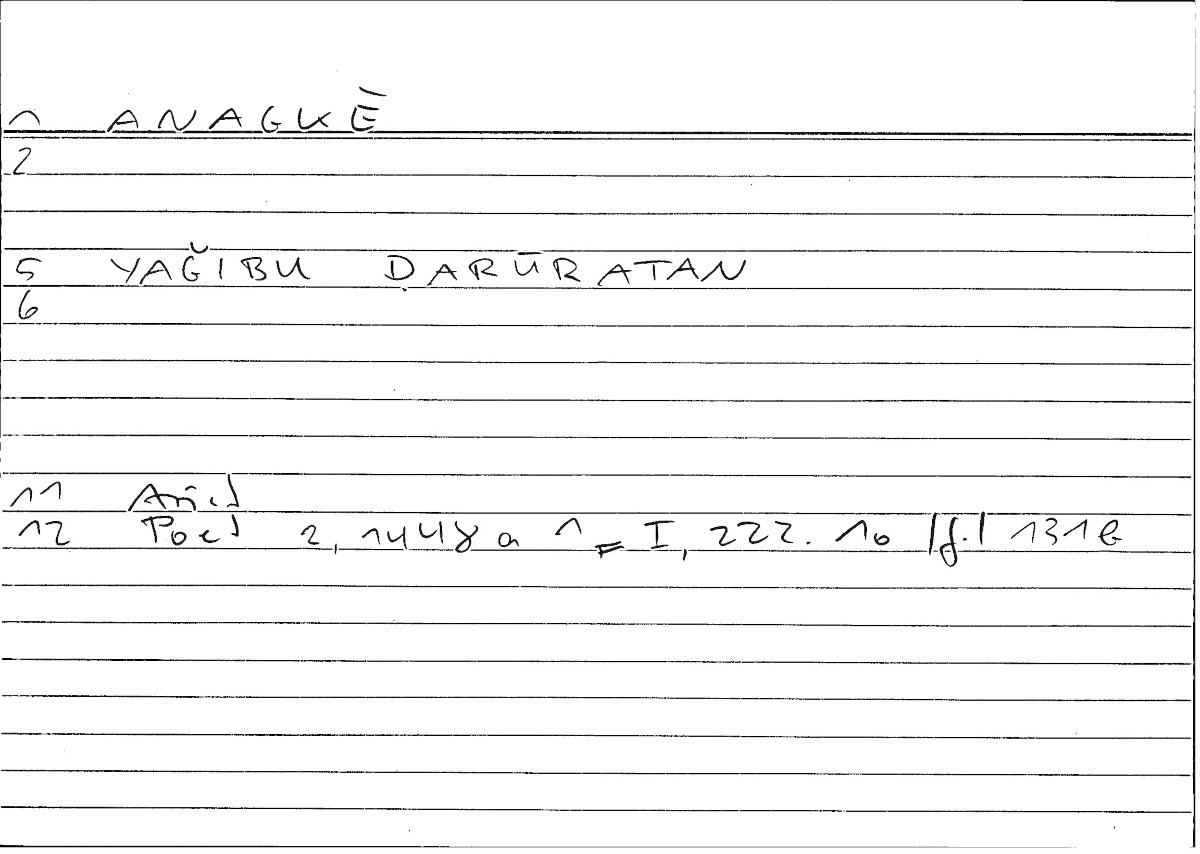 1 ANAGKĒ
2
5 YAǦIBU ḌARŪRATAN
6
11 Arist
12 Poet 2, 1448 a 1 = I, 222. 10 /f./ 131b